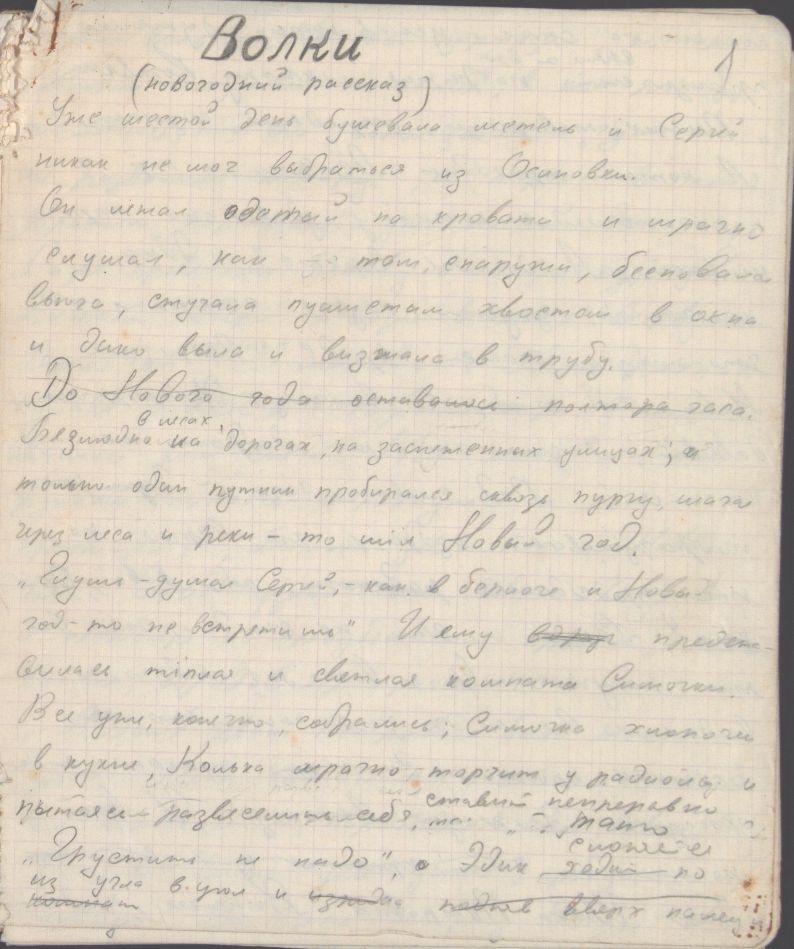 Волки
1
(новогодний рассказ)
Уже шестой день бушевала метель и Сергей
никак не мог выбраться из Осиновки.
Он лежал одетый на кровати и мрачно
слушал, как там, снаружи, бесновала
вьюга, стучала пушистым хвостом в окна
и дико выла и визжала в трубу.
До Нового года оставалось полтора часа.
в лесах,
Безлюдно на дорогах, на заснеженных улицах; и
только один путник пробирался сквозь пургу, шагал
через леса и реки – то шёл Новый год.
„Глушь – думал Сергей, – как в берлоге и Новый
год-то не встретишь" И ему вдруг предста-
вилась тёплая и светлая комната Симочки.
Все уже, конечно, собрались; Симочка хлопочет
в кухне, Колька мрачно торчит у радиолы и
пытаясь развеселить себя, ставит непрерывно
танго
„Грустить не надо", а Эдик слоняется
ходит по
из угла в угол и подняв вверх палец